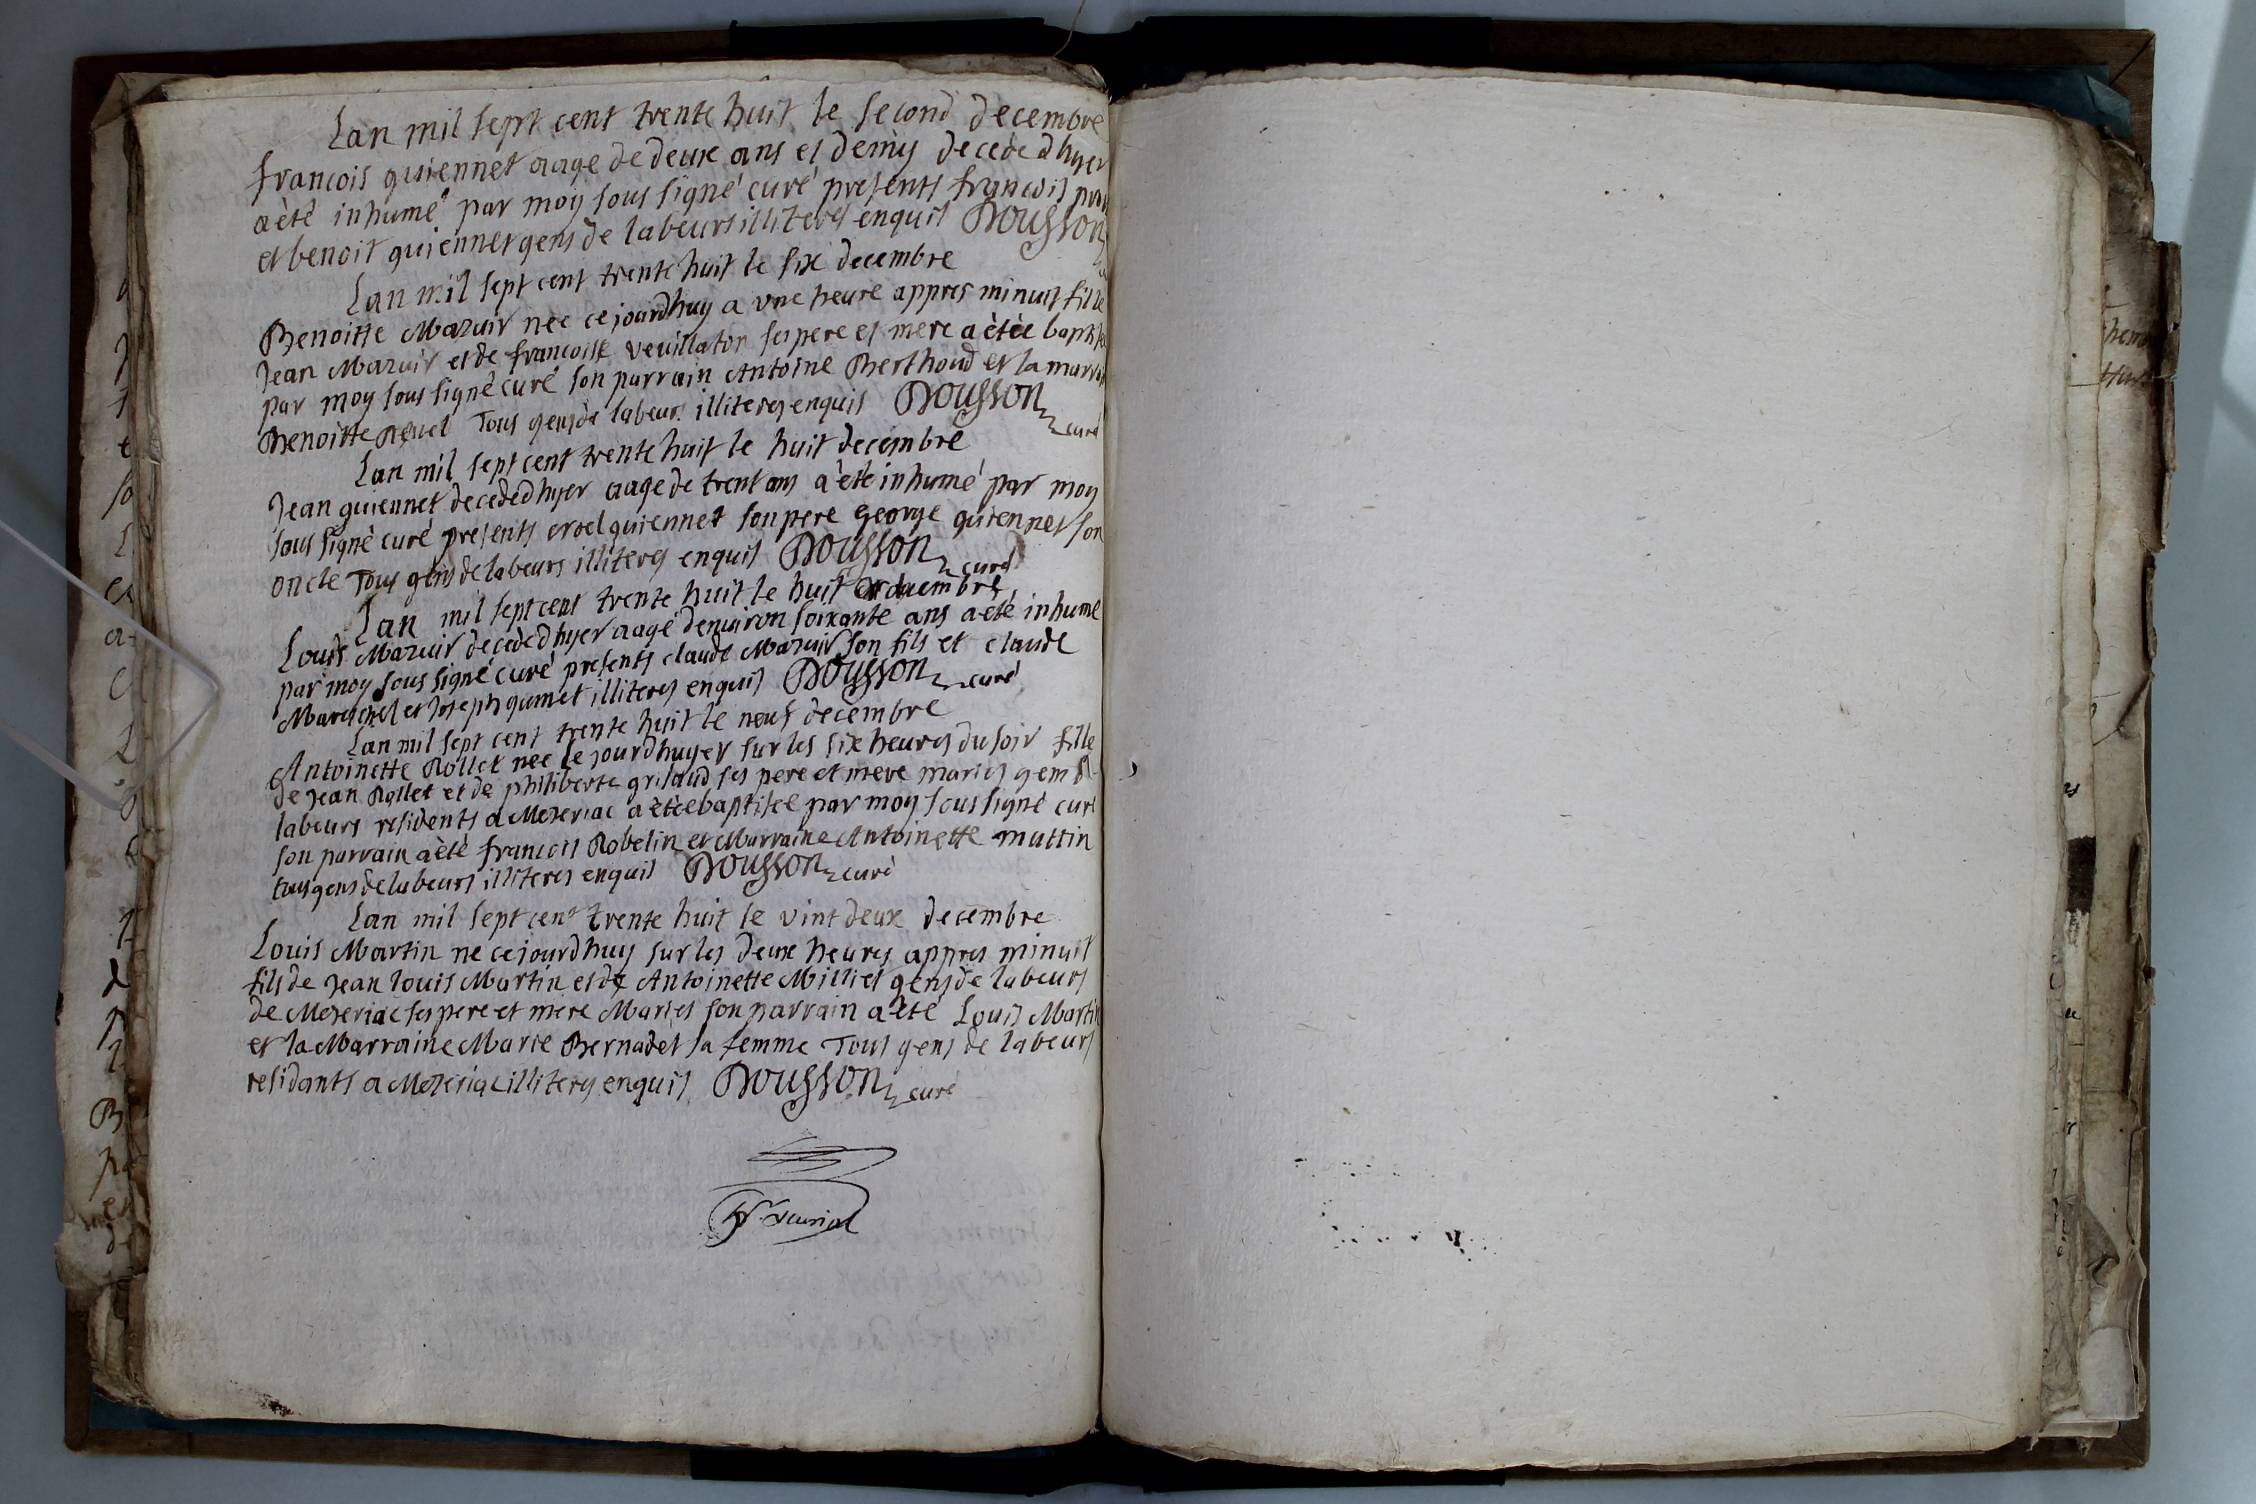 Lan mil sept cent trente huit le second decembre
francois guiennet aage de deux ans et demy decedé dhyer
a été inhumé par moy sous signé curé presents francois
et benoit guiennet gens de labeurs illiteres enquis Dousson
Lan mil sept cent trente huit le six decembre
Benoitte Mazuir nee ce jourdhuy a une heure appres minuit fille
Jean Mazuir et de francoise veuillator ses pere et mere a étée
par moy sous signé curé son parrain Antoine Berthoud et la
Benoitte Tous gens de labeurs illiteres enquis Dousson curé
Lan mil sept cent trente huit le huit decembre
Jean guiennet decedé dhyer aage de trent ans a été inhumé par moy
sous signé curé presents guiennet son pere george guiennet son
oncle Tous gens de labeurs illiteres enquis Dousson curé
Lan mil sept cent trente huit le huit decembre
Louis Mazuir decedé dhyer aagé denuiron soixante ans a eté inhumé
par moy sous signé curé presents claude Mazuir son fils et claude
Marechel et Joseph gumet illiteres enquis Dousson curé
Lan mil sept cent trente huit le neuf decembre
Antoinette Rollet nee le jourdhuyer sur les six heures du soir fille
de Jean Rollet et de philiberte grisaud ses pere et mere maries gens
labeurs residents a Mezeriac a étée baptisee par moy sous signé curé
son parrain a été francois Robelin et Marraine Antoinette mattin
tous gens de labeurs illiteres enquis Dousson curé
Lan mil sept cent trente huit le vint deux decembre
Louis Martin ne ce jourdhuy sur les deux heures appres minuit
fils de Jean louis Martin et de Antoinette Milliet gens de labeurs
de Mezeriac ses pere et mere Maries son parrain a été Louis Martin
et la Marraine Marie Bernadet sa femme Tous gens de labeurs
residants a Mezeriac illiteres enquis Dousson curé